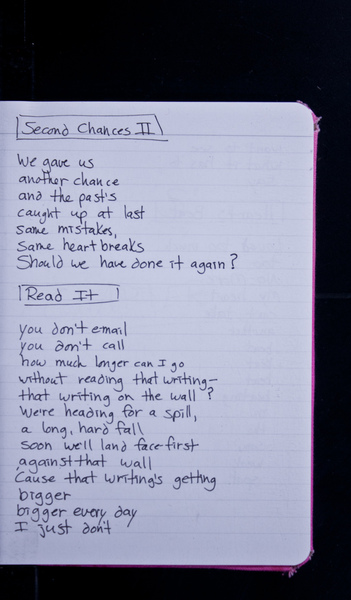 Second Chances II
We gave us
another chance
and the past's
caught up at last
same mistakes,
same heartbreaks
Should we have done it again?
Read It
you don't email
you don't call
how much longer can I go
without reading that writing—
that writing on the wall?
We're heading for a spill,
a long, hard fall
soon we'll land face-first
against that wall
Cause that writing's getting
bigger
bigger every day
I just don't